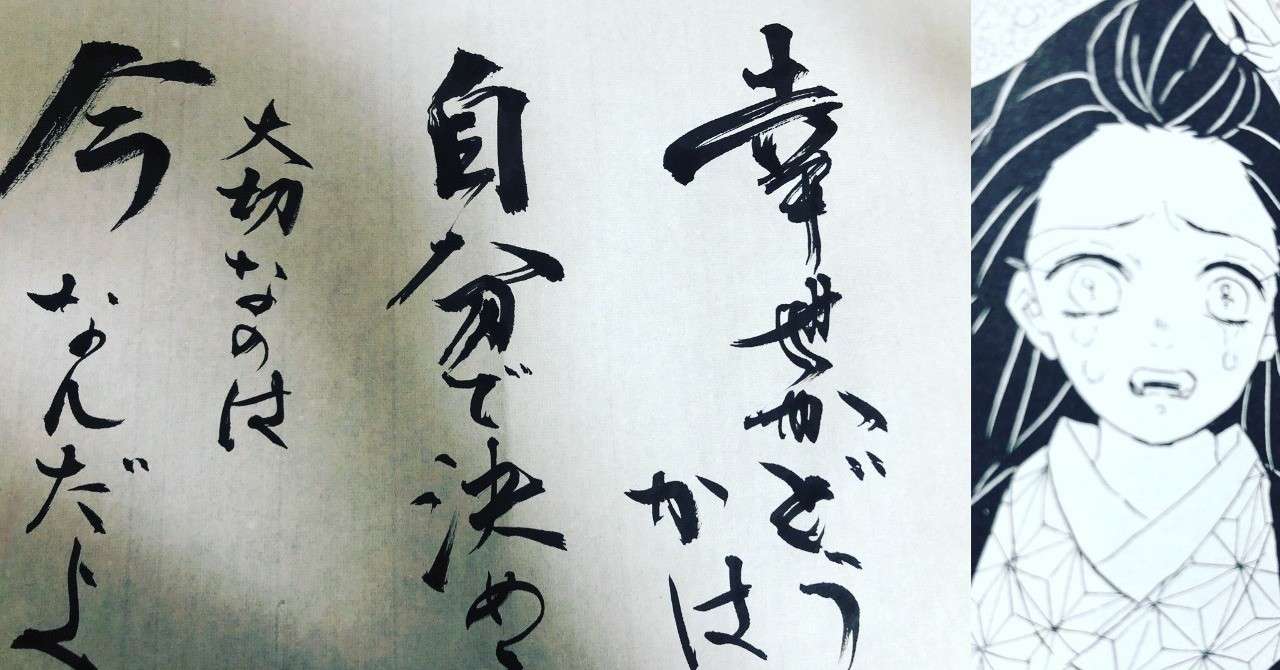 幸せかどう
かは
自分で決め
大切なのは
今なんだよ